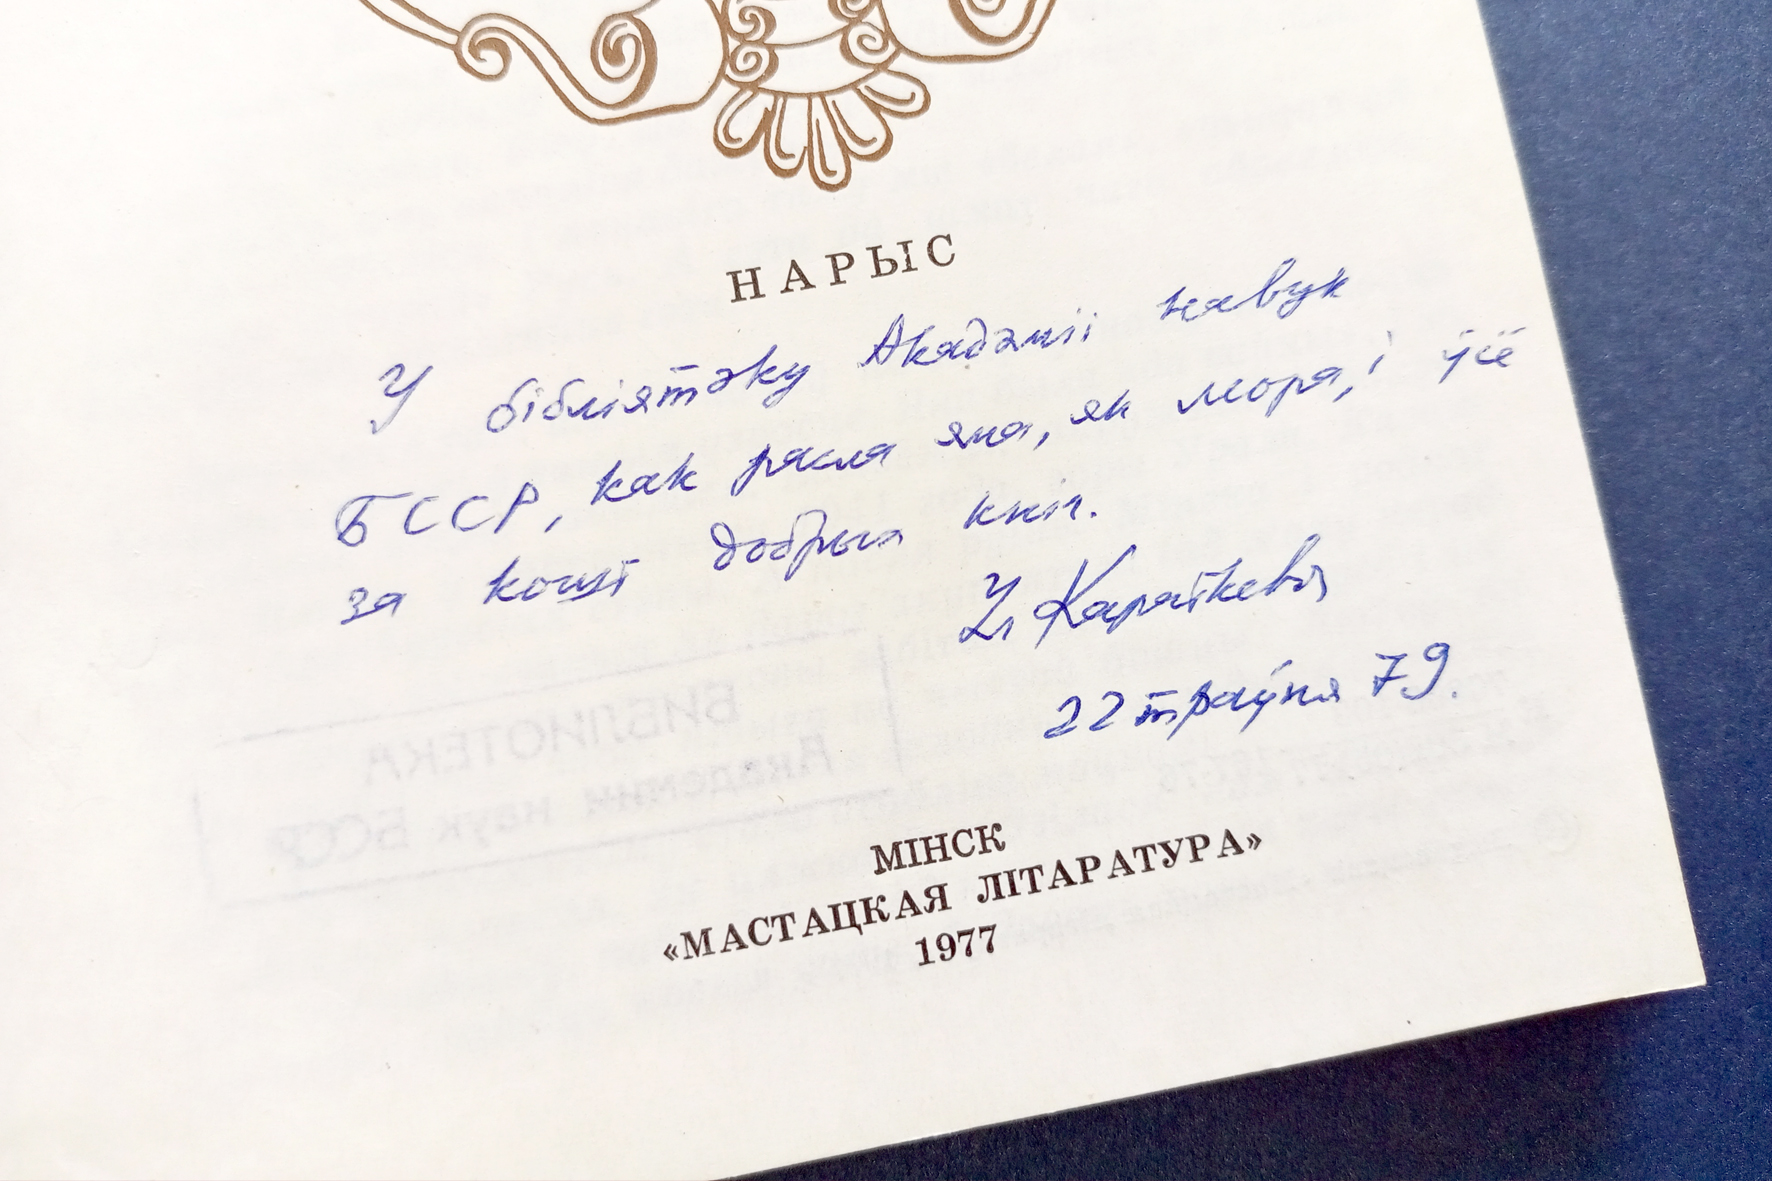 НАРЫС
У бібліятэку Акадэміі навук
БССР, каб расла яна, як мора, і ўсё
за кошт добрых кніг.
Ул. Караткевіч
22 траўня 79.
БИБЛИОТЕКА
Академии наук БССР
МІНСК
«МАСТАЦКАЯ ЛІТАРАТУРА»
1977